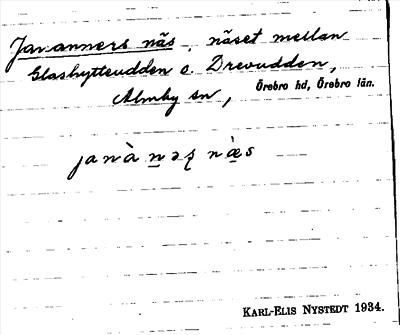 Jan-anners näs, näset mellan
Glashytteudden o. Drevudden,
Almby sn, Örebro hd, Örebro län.
janà nəʂ næ̀s
KARL-ELIS NYSTEDT 1934.